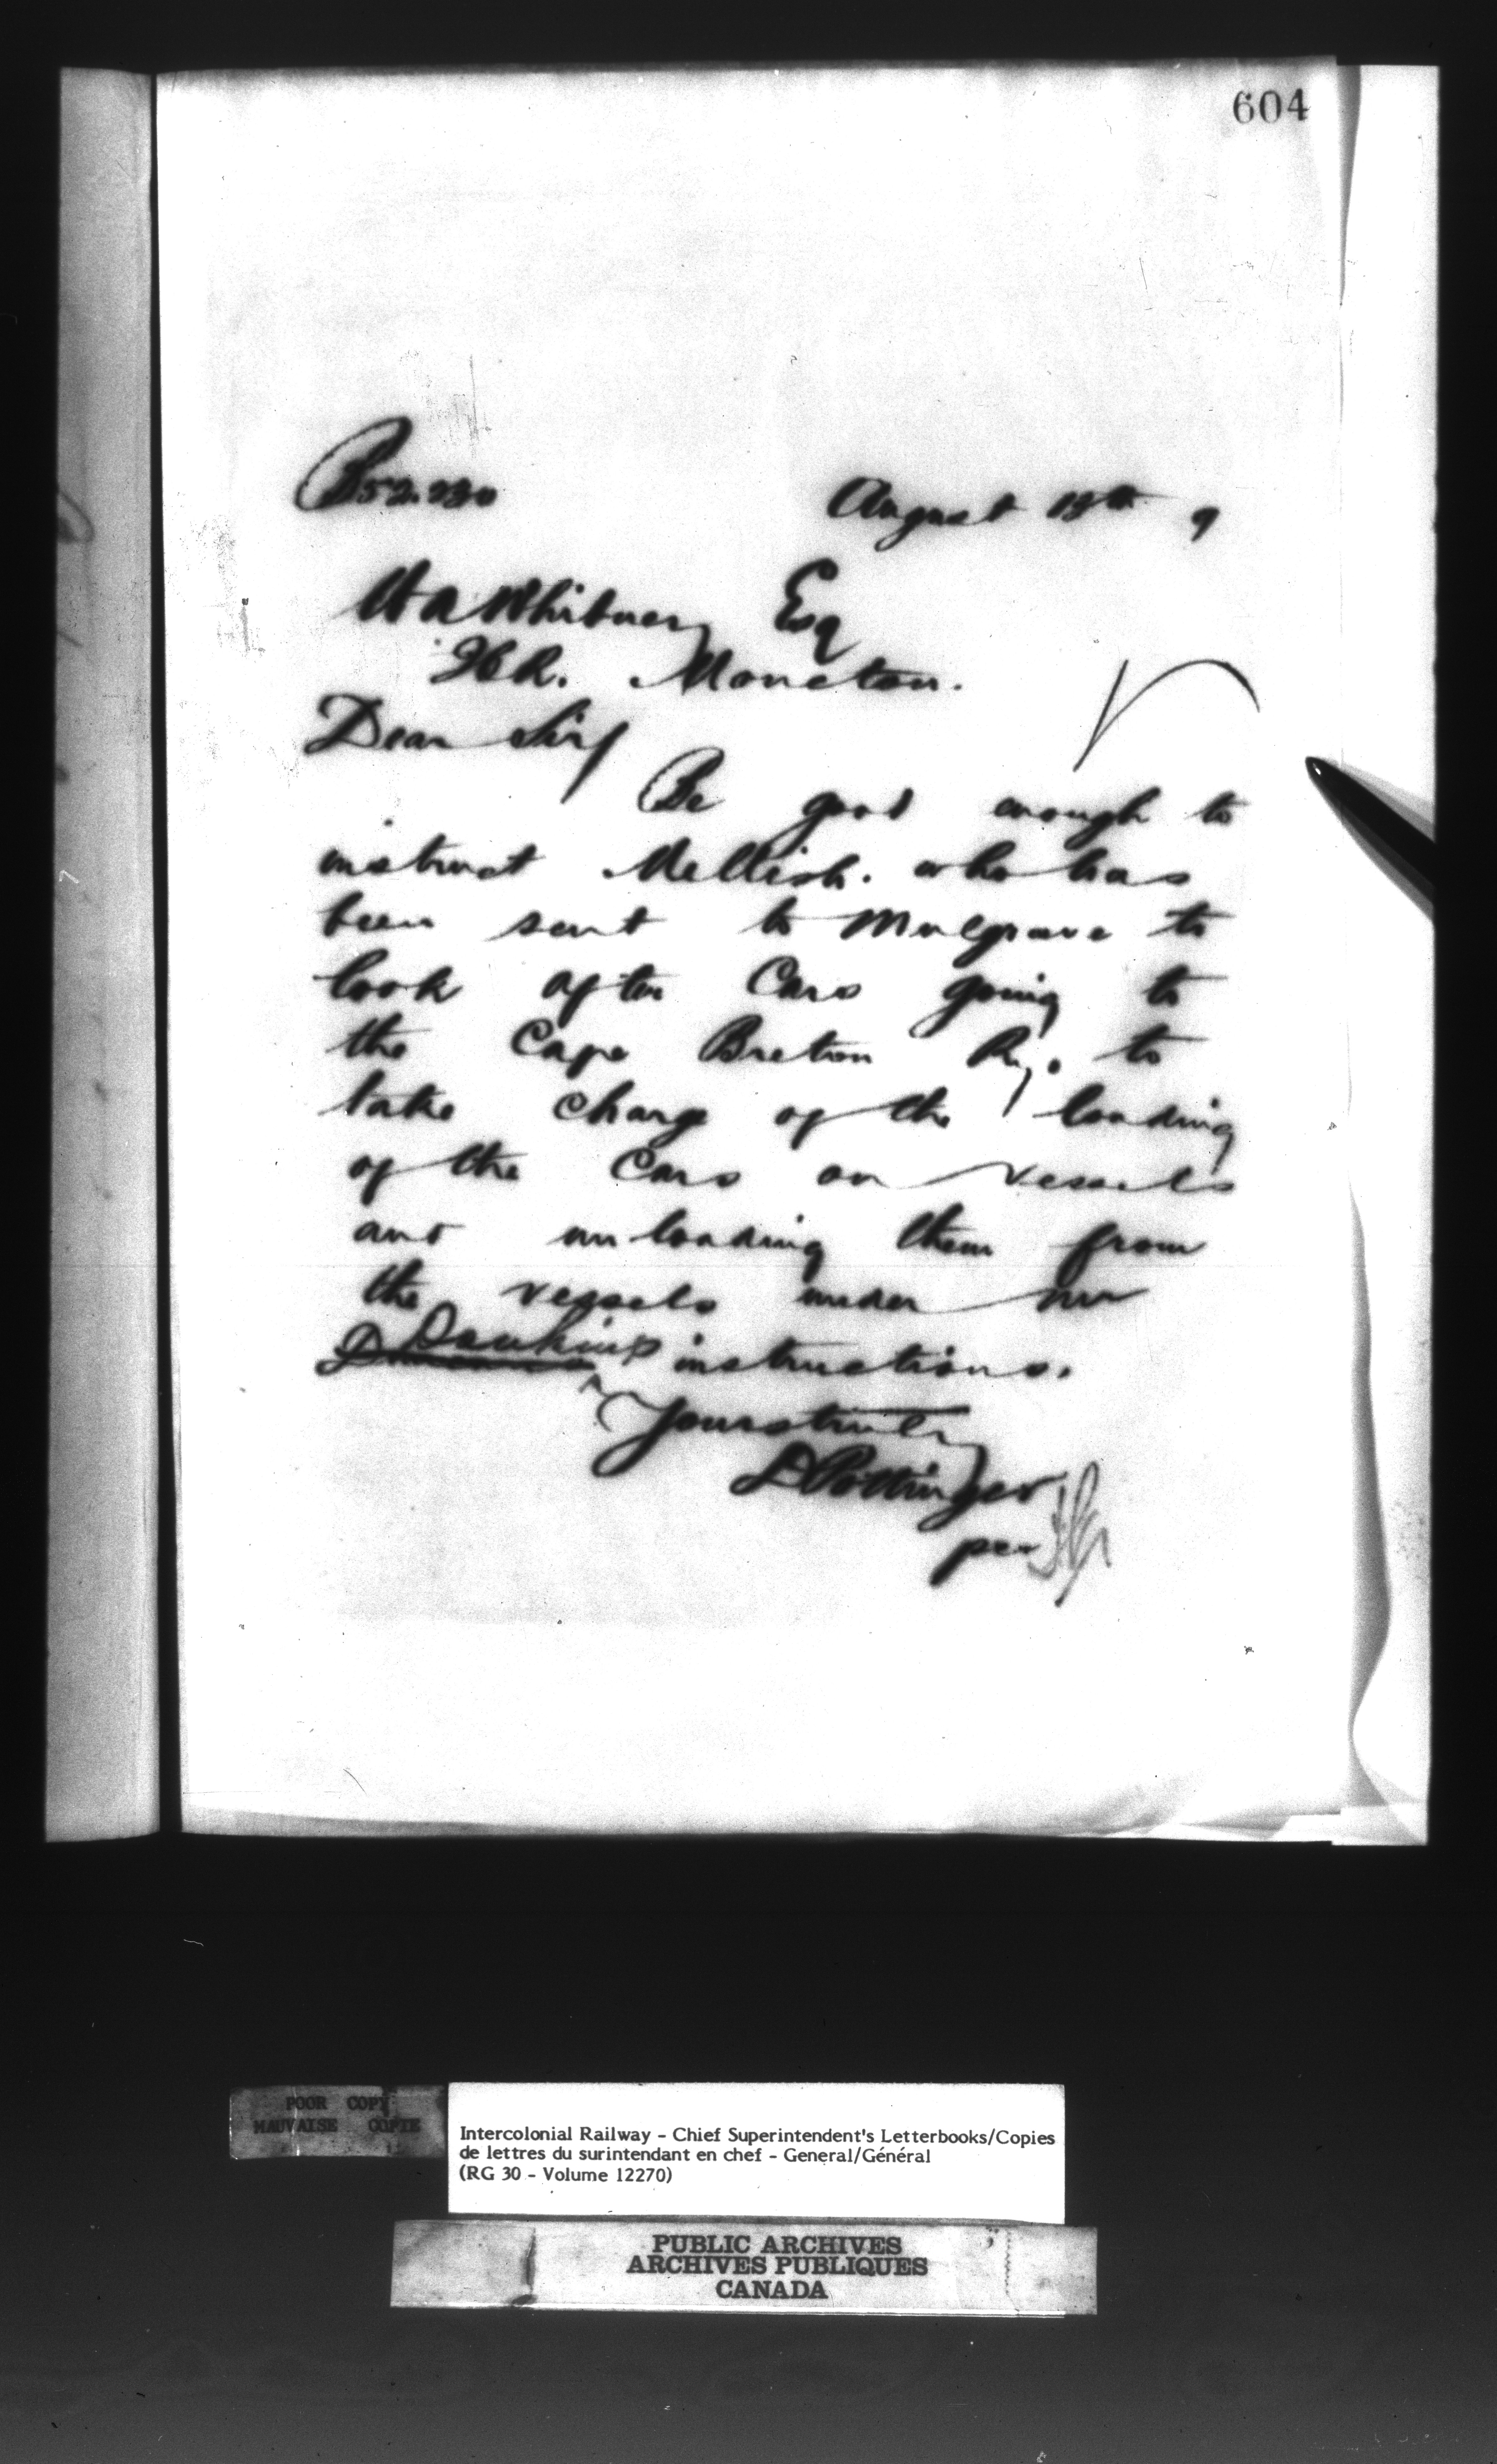 604
B52.230
August 13th 9
H A Whitney Esq
ICR. Moncton.
Dear Sir/
Be good enough to
instruct Mellish. who has
been sent to Mulgrave to
look after Cars going to
the Cape Breton Ry. to
take charge of the loading
of the Cars on vessels
and unloading them from
the vessels under Mr
Dawkins instructions.
Yours truly
D Pottinger
per
POOR COPY
MAUVAISE COPIE
Intercolonial Railway - Chief Superintendent's Letterbooks/Copies
de lettres du surintendant en chef - General/Général
(RG 30 - Volume 12270)
PUBLIC ARCHIVES
ARCHIVES PUBLIQUES
CANADA